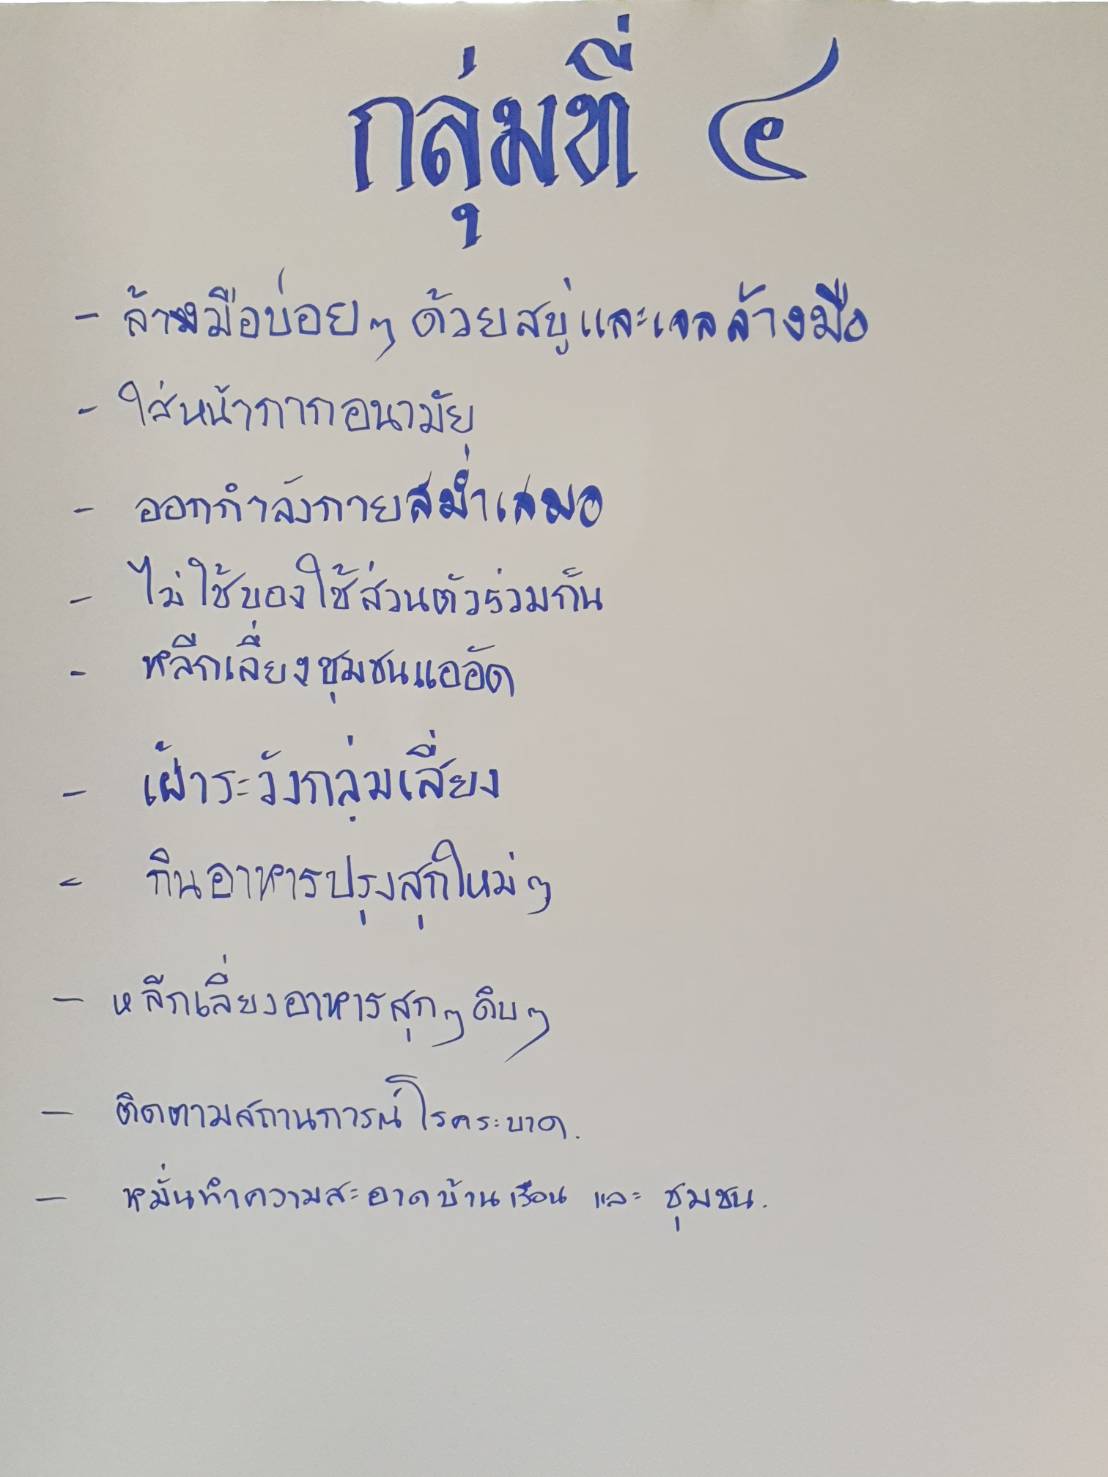 กลุ่มที่ ๔
- ล้างมือบ่อยๆ ด้วยสบู่และเจลล้างมือ
- ใส่หน้ากากอนามัย
- ออกกำลังกายสม่ำเสมอ
- ไม่ใช้ของใช้ส่วนตัวร่วมกัน
- หลีกเลี่ยงชุมชนแออัด
- เฝ้าระวังกลุ่มเสี่ยง
- กินอาหารปรุงสุกใหม่ๆ
- หลีกเลี่ยงอาหารสุกๆ ดิบๆ
- ติดตามสถานการณ์โรคระบาด.
- หมั่นทำความสะอาดบ้านเรือน และ ชุมชน.